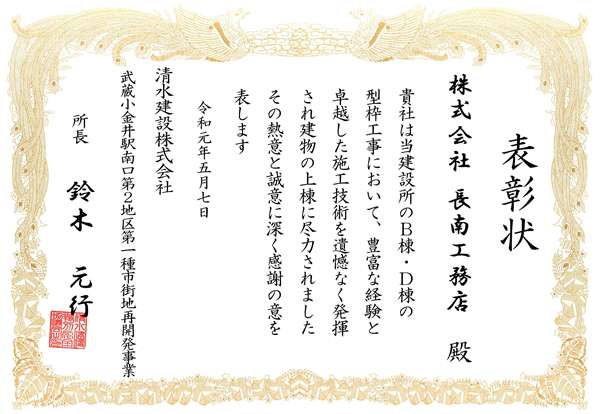 表彰状
株式会社 長南工務店 殿
貴社は当建設所のB棟・D棟の
型枠工事において、豊富な経験と
卓越した施工技術を遺憾なく発揮
され建物の上棟に尽力されました
その熱意と誠意に深く感謝の意を
表します
令和元年五月七日
清水建設株式会社
武蔵小金井駅南口第2地区第一種市街地再開発事業
所長 鈴木 元行